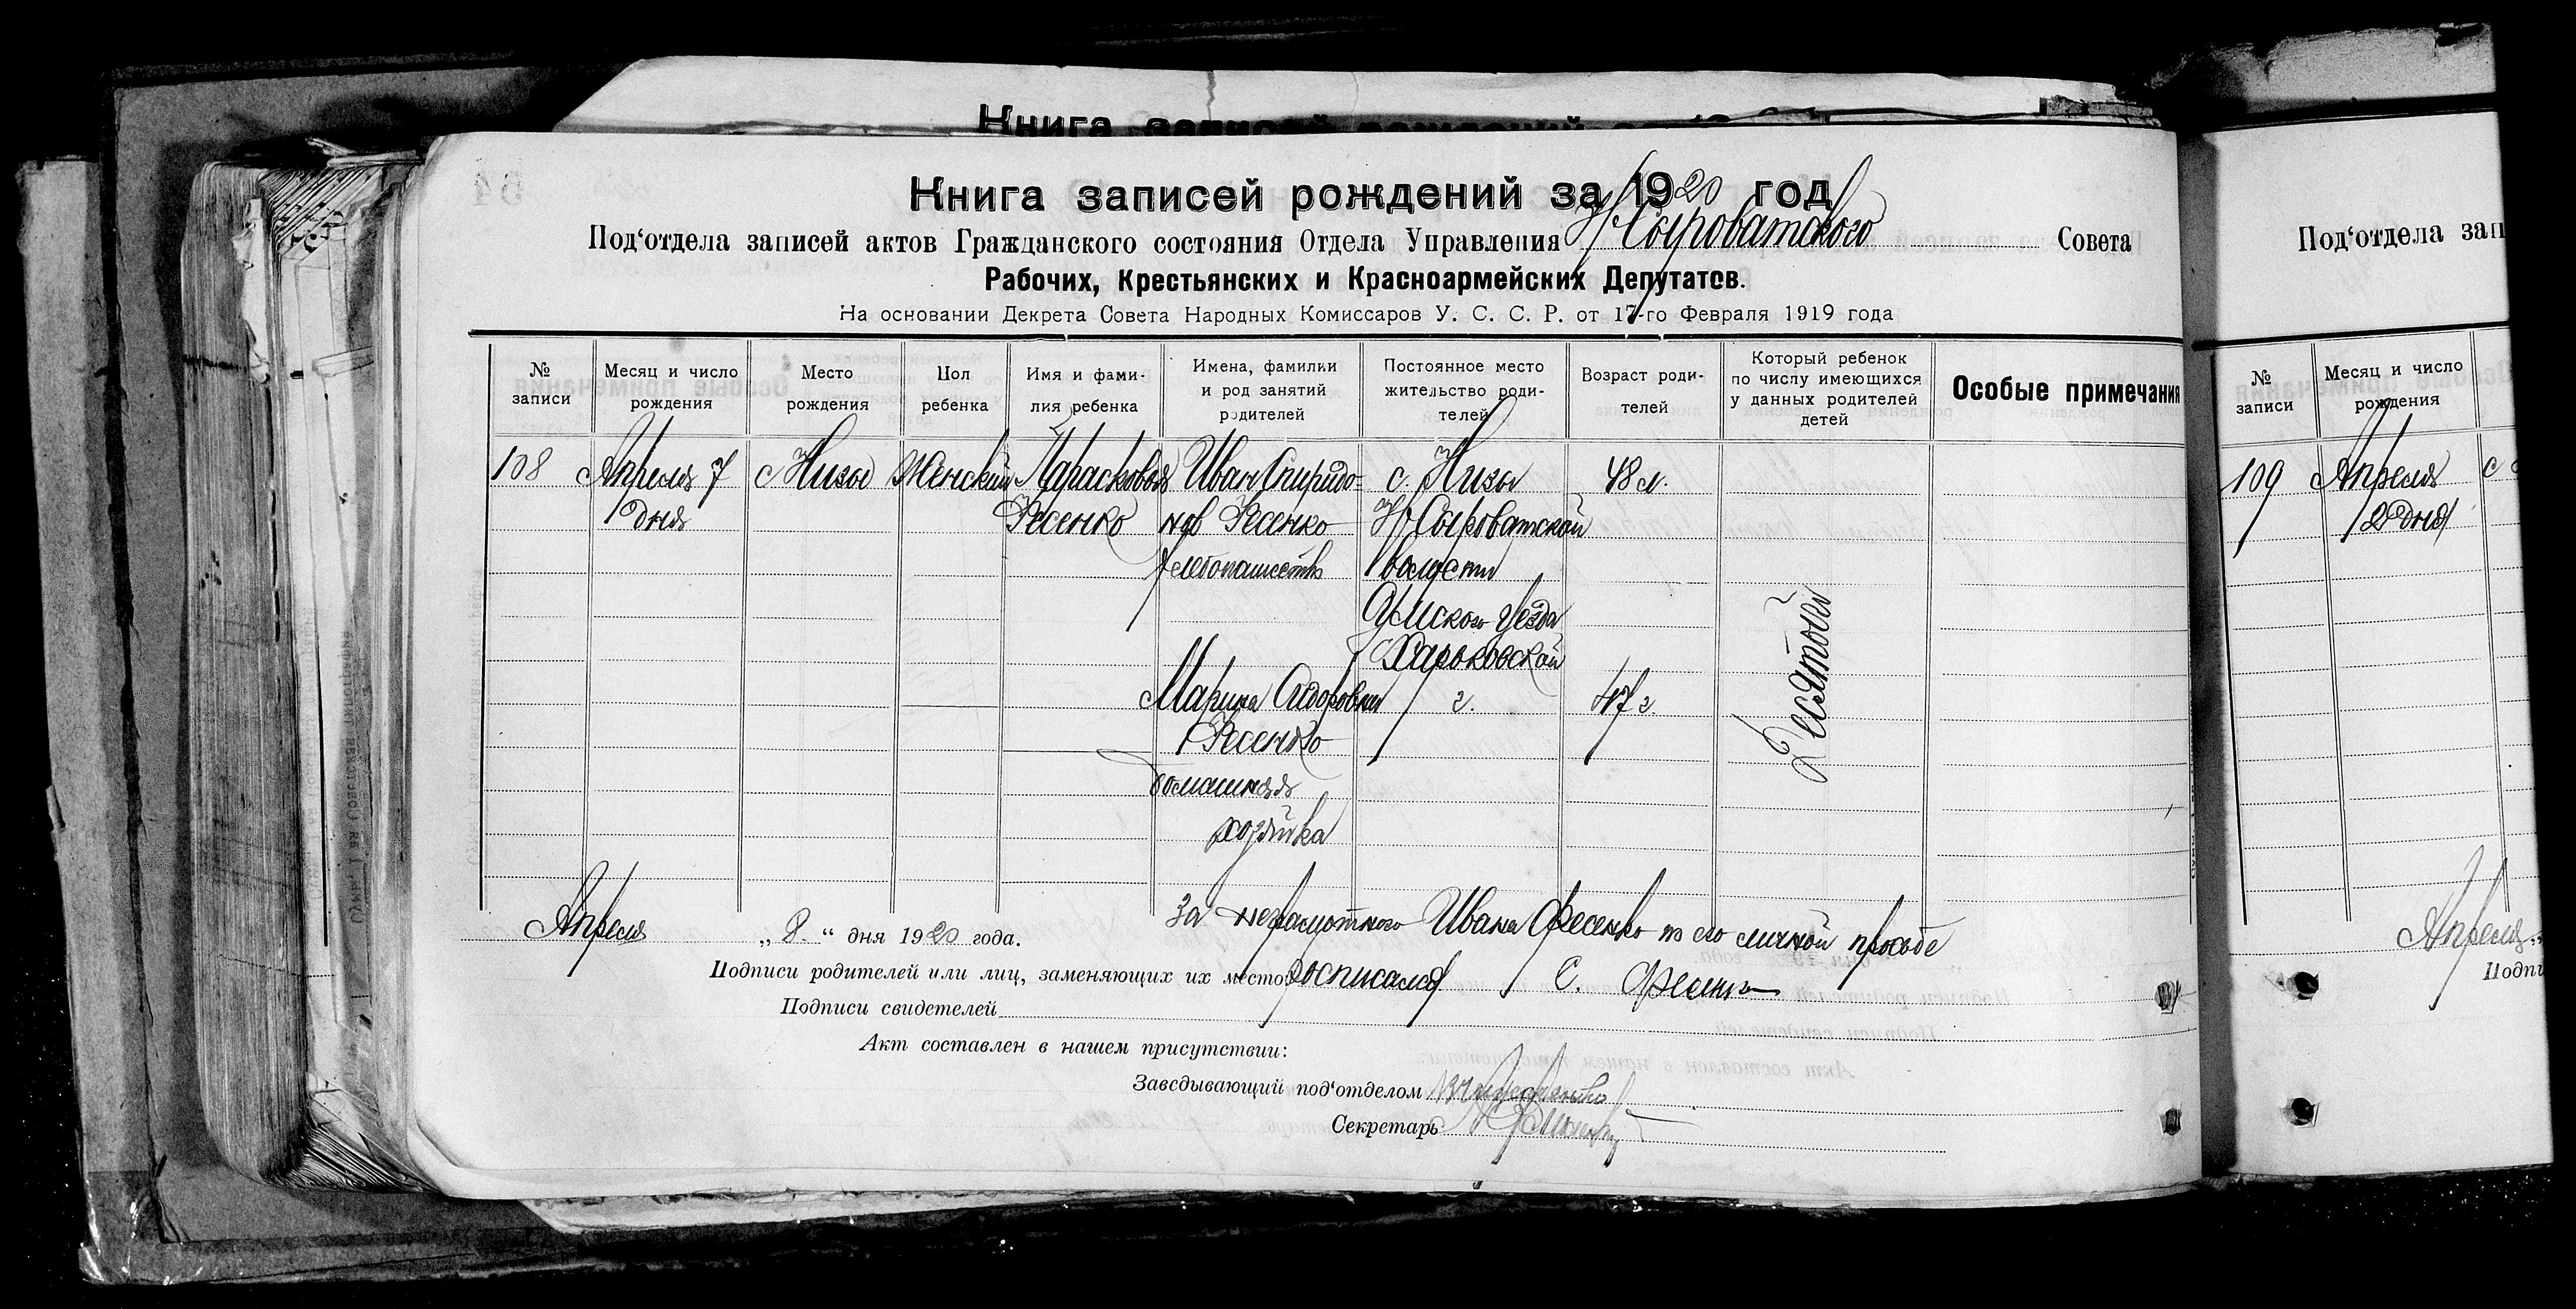 Книга записей рождений за 19
Книга записей рождений за 1920 год
Под‘отдела записей актов Гражданского состояния Отдела Управления Н Сыроватского Совета
Рабочих, Крестьянских и Красноармейских Депутатов.
На основании Декрета Совета Народных Комиссаров У. С. С. Р. от 17-го Февраля 1919 года
№ записи
Месяц и число рождения
Место рождения
Пол ребенка
Имя и фами-
лия ребенка
Имена, фамилии
и род занятий
родителей
Постоянное место
жительство роди-
телей
Возраст роди-
телей
Который ребенок
по числу имеющихся
у данных родителей
детей
Особые примечания
108
Апреля 7
дня
с Низы
Женский
Парасковья
Фесенко
Иван Спиридо-
нов Фесенко
хлебопашеств
Марина Сидоровна
Фесенко
домашняя
хозяйка
с. Низы
Н Сыроватской
волости
Сумского уезда
Харьковской
г.
48 л.
47 г.
Десятый
Апреля „8.“ дня 1920 года.
За неграмотного Ивана Фесенко по его личной просьбе
Подписи родителей или лиц, заменяющих их место: росписался С. Фесенко
Подписи свидетелей
Акт составлен в нашем присутствии:
Заведывающий под‘отделом
Секретарь
Под‘отдела зап
№ записи
Месяц и число
рождения
109
Апреля
2 дня
с
Апреля „
Подпи